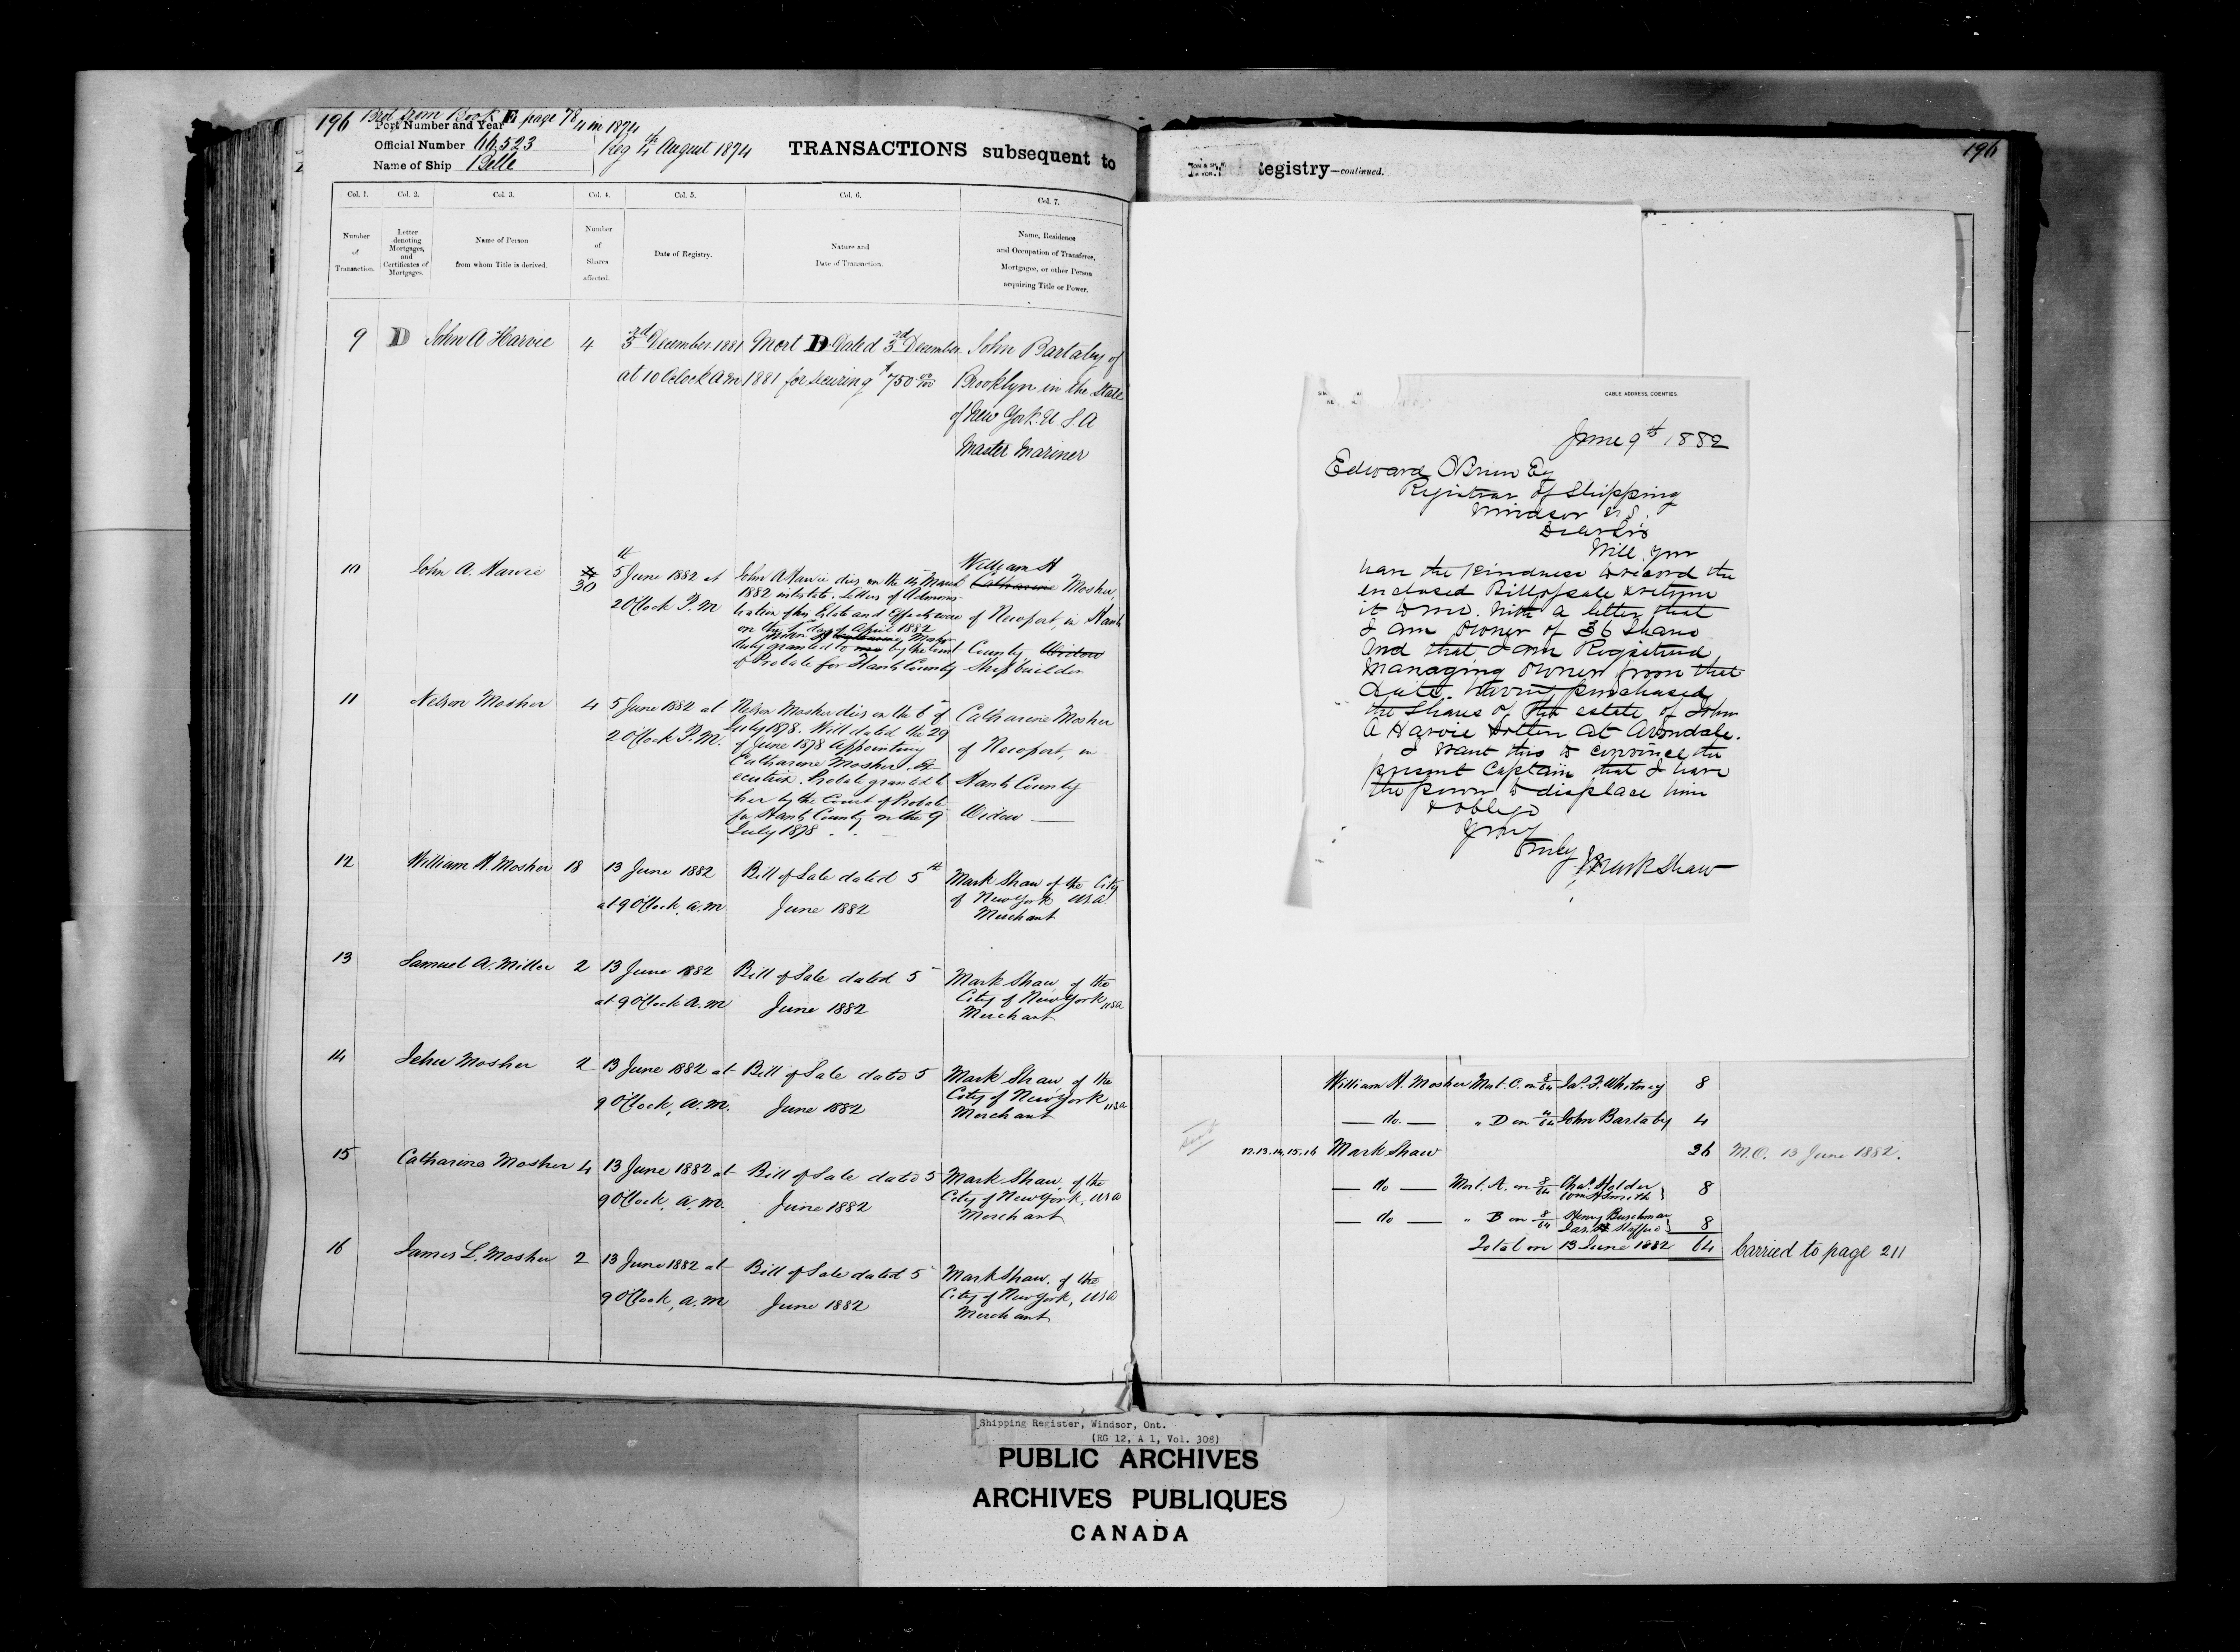 196 Brot from Book E page 78
Port Number and Year 4 in 1874
Official Number 66,523
Name of Ship Belle
Reg 4th August 1874
TRANSACTIONS subsequent to
Col. 1.
Col. 2.
Col. 3.
Col. 4.
Col. 5.
Col. 6.
Col. 7.
Number
of
Transaction.
Letter
denoting
Mortgages,
and
Certificates of
Mortgages.
Name of Person
from whom Title is derived.
Number
of
Shares
affected.
Date of Registry.
Nature and
Date of Transaction.
Name, Residence
and Occupation of Transferee,
Mortgagee, or other Person
acquiring Title or Power.
9 D John A Harvie 4
3rd December 1881
at 10 Oclock a m
Mort D Dated 3rd December
1881 for securing $750 00/100
John Bartaby of
Brooklyn in the State
of New York U S. A
Master Mariner
10 John A. Harvie
30
5th June 1882 at
2 O'Clock P. M
John A Harvie died on the 14 March
1882 intestate. Letters of Adminis-
tration of his Estate and Effects were
on the 1st day of April 1882
duly granted to by the Court
of Probate for Hants County
William H
Catharine Mosher,
of Newport, in Hants
County, Widow
Shipbuilder
11 Nelson Mosher 4
5 June 1882 at
2 O'Clock P. M.
Nelson Mosher died on the 6 of
July 1878. Will dated the 29
of June 1878 Appointing
Catharine Mosher Ex-
ecutrix. Probate granted to
her by the Court of Probate
for Hants County on the 9
July 1878
Catharine Mosher
of Newport, in
Hants County
Widow
12 William H. Mosher 18
13 June 1882
at 9 O'Clock, a.m
Bill of Sale dated 5th
June 1882
Mark Shaw of the City
of New York USA
Merchant
13 Samuel A. Miller 2
13 June 1882
at 9 O'Clock A. M
Bill of Sale dated 5
June 1882
Mark Shaw, of the
City of New York, USA
Merchant
14 Jehu Mosher 2
13 June 1882 at
9 O'Clock, A. M.
Bill of Sale dated 5
June 1882
Mark Shaw, of the
City of New York, USA
Merchant
15 Catharine Mosher 4
13 June 1882 at
9 O'Clock, A. M.
Bill of Sale dated 5
June 1882
Mark Shaw, of the
City of New York, USA
Merchant
16 James L. Mosher 2
13 June 1882 at
9 O'Clock, A. M
Bill of Sale dated 5
June 1882
Mark Shaw, of the
City of New York, USA
Merchant
egistry—continued.
196
CABLE ADDRESS, COENTIES
June 9th 1882
Edward O'Brien Esq
Registrar of Shipping
Windsor N.S.
Dear Sir
Will you
have the kindness to record the
enclosed Bill of sale & return
it to me. With a letter that
I am owner of 36 Shares
and that I am Registered
Managing Owner from that
date. Having purchased
the Shares of the estate of John
A Harvie at Avondale.
I want this to convince the
present Captain that I have
the power to displace him
& oblige
Yours
Truly
Mark Shaw
William H. Mosher Mort. C. on 8/64 Jas. F. Whitney 8
— do. — " D on 4/64 John Bartaby 4
12.13.14,15,16 Mark Shaw 36 M.O. 13 June 1882.
— do — Mort. A. on 8/64 Chas. Holder
Wm H Smith } 8
— do — " B on 8/64 Henry Buschman
Jas. Stafford } 8
Total on 13 June 1882 64 Carried to page 211
Shipping Register, Windsor, Ont.
(RG 12, A 1, Vol. 308)
PUBLIC ARCHIVES
ARCHIVES PUBLIQUES
CANADA